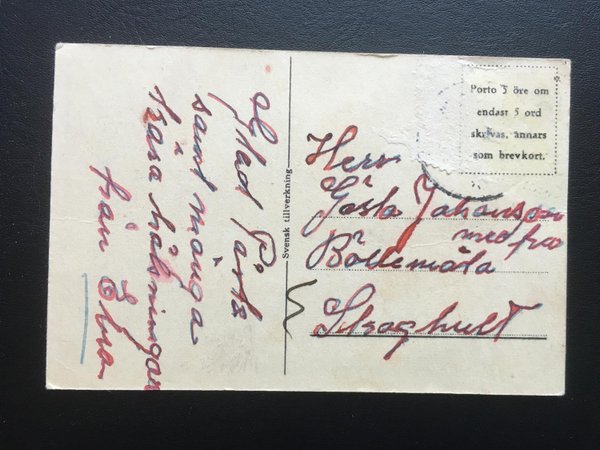 Glad Påsk
samt många
kära hälsningar
från Ebna
Svensk tillverkning
Porto 5 öre om
endast 5 ord
skrivas, annars
som brevkort.
Herr
Gösta Johansson
med fru
Böllemåla
Skoghult